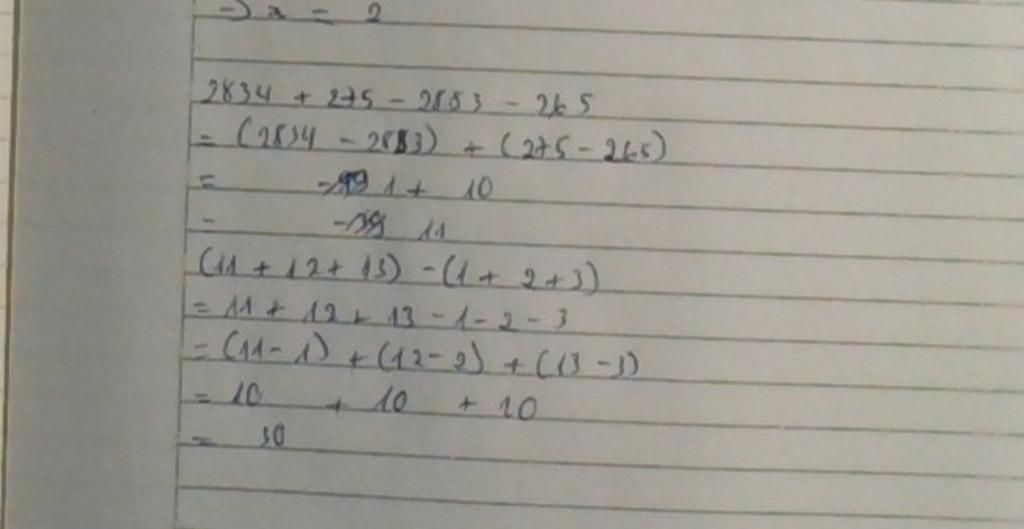 => x = 2
2834 + 275 - 2833 - 265
= (2834 - 2833) + (275 - 265)
= 1 + 10
= 11
(11 + 12 + 13) - (1 + 2 + 3)
= 11 + 12 + 13 - 1 - 2 - 3
= (11 - 1) + (12 - 2) + (13 - 3)
= 10 + 10 + 10
= 30